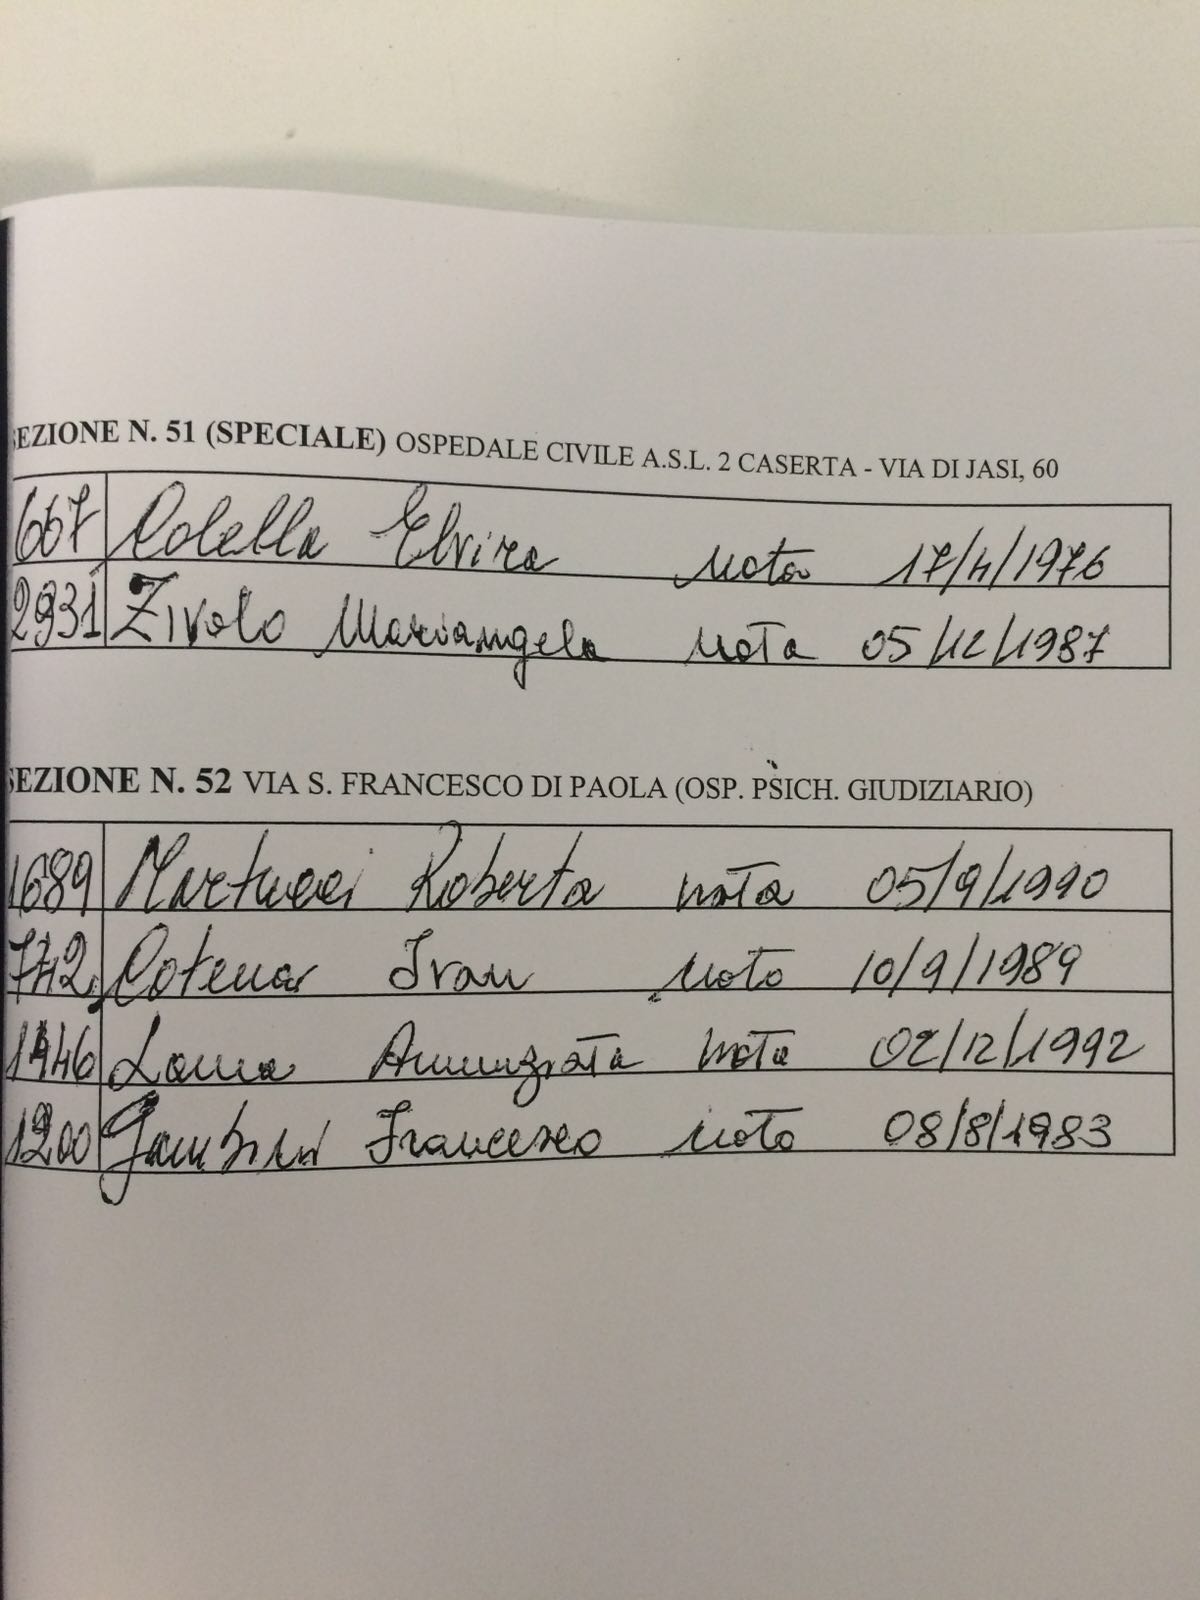 SEZIONE N. 51 (SPECIALE) OSPEDALE CIVILE A.S.L. 2 CASERTA - VIA DI JASI, 60
667 Colella Elvira nata 17/4/1976
2931 Zivolo Mariangela nata 05/12/1987
SEZIONE N. 52 VIA S. FRANCESCO DI PAOLA (OSP. PSICH. GIUDIZIARIO)
1689 Martucci Roberta nata 05/9/1990
742 Cotena Ivan nato 10/9/1989
Lama Annunziata nata 02/12/1992
1200 Francesco nato 08/8/1983